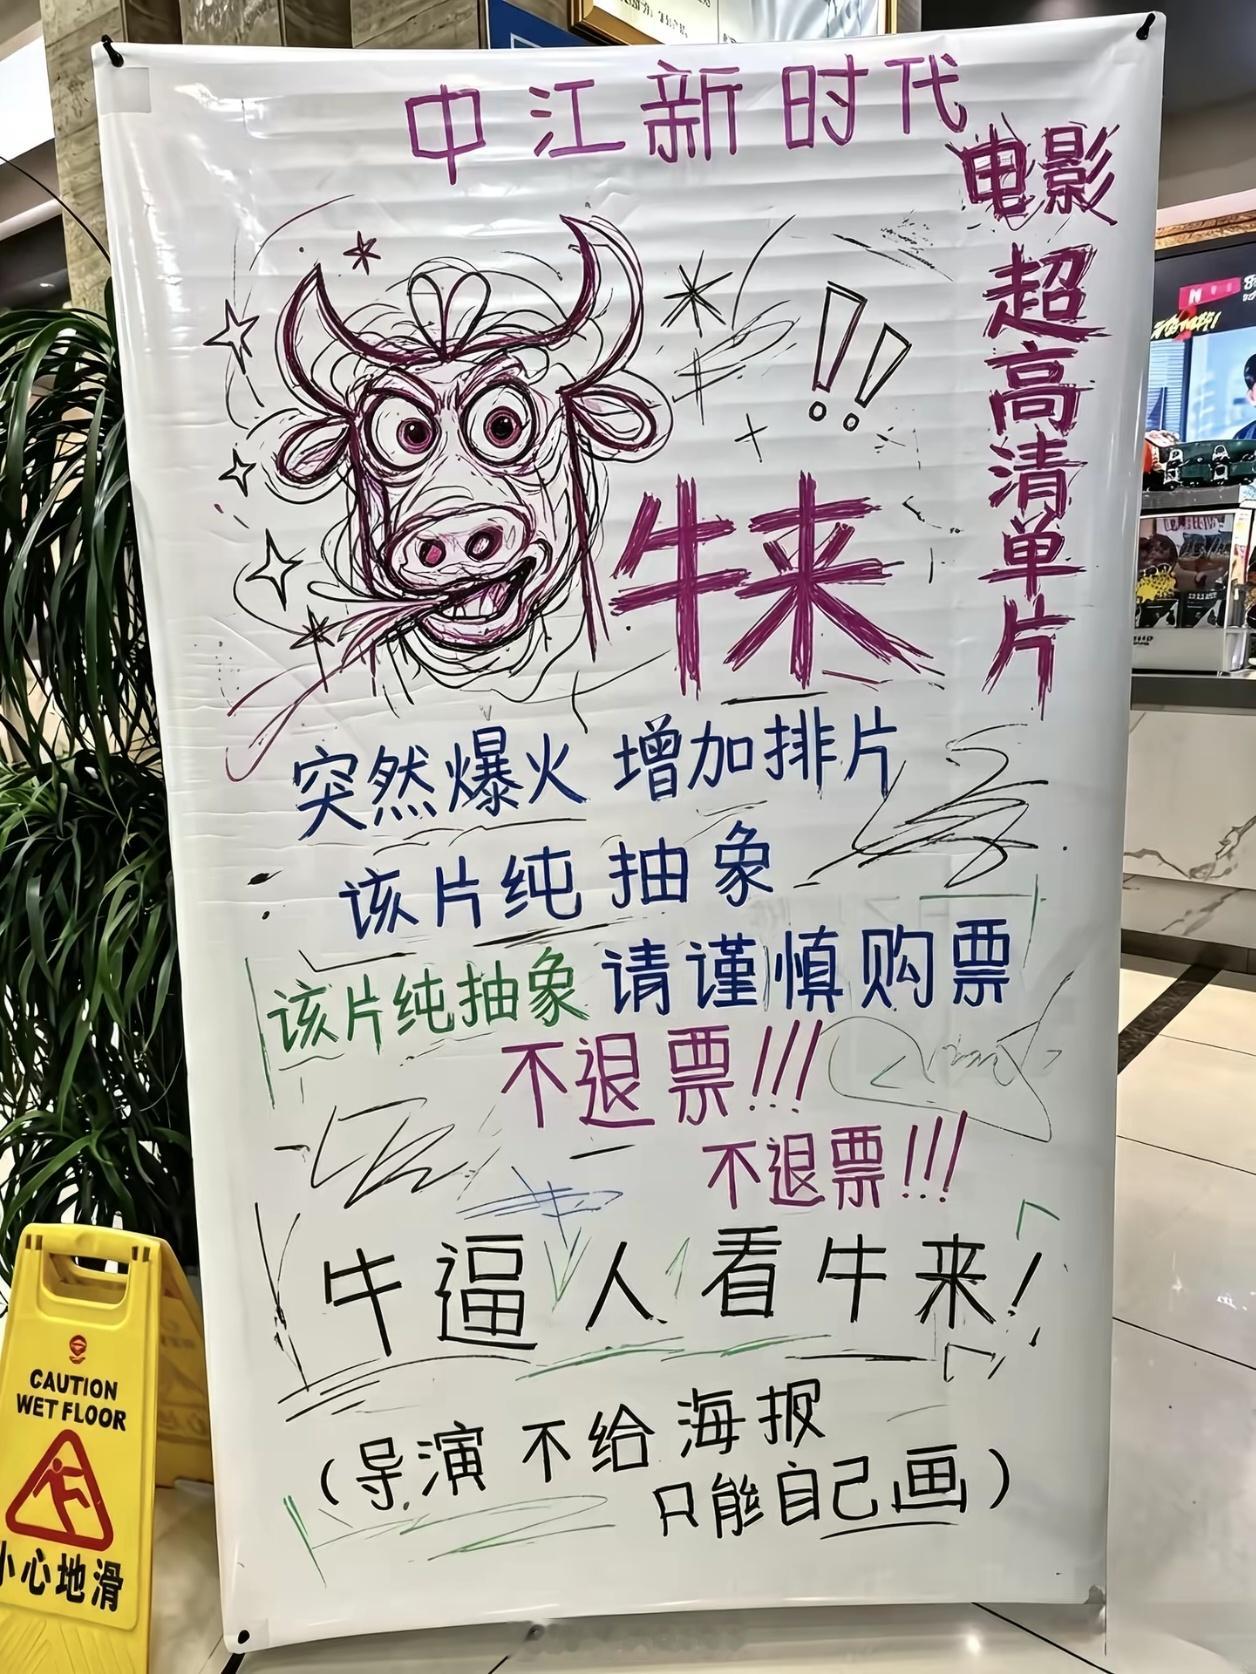 中江新时代
电影
超高清单片
牛来
!!
突然爆火 增加排片
该片纯抽象
该片纯抽象 请谨慎购票
不退票!!!
不退票!!!
牛逼人看牛来!
(导演不给海报
只能自己画)
CAUTION
WET FLOOR
小心地滑